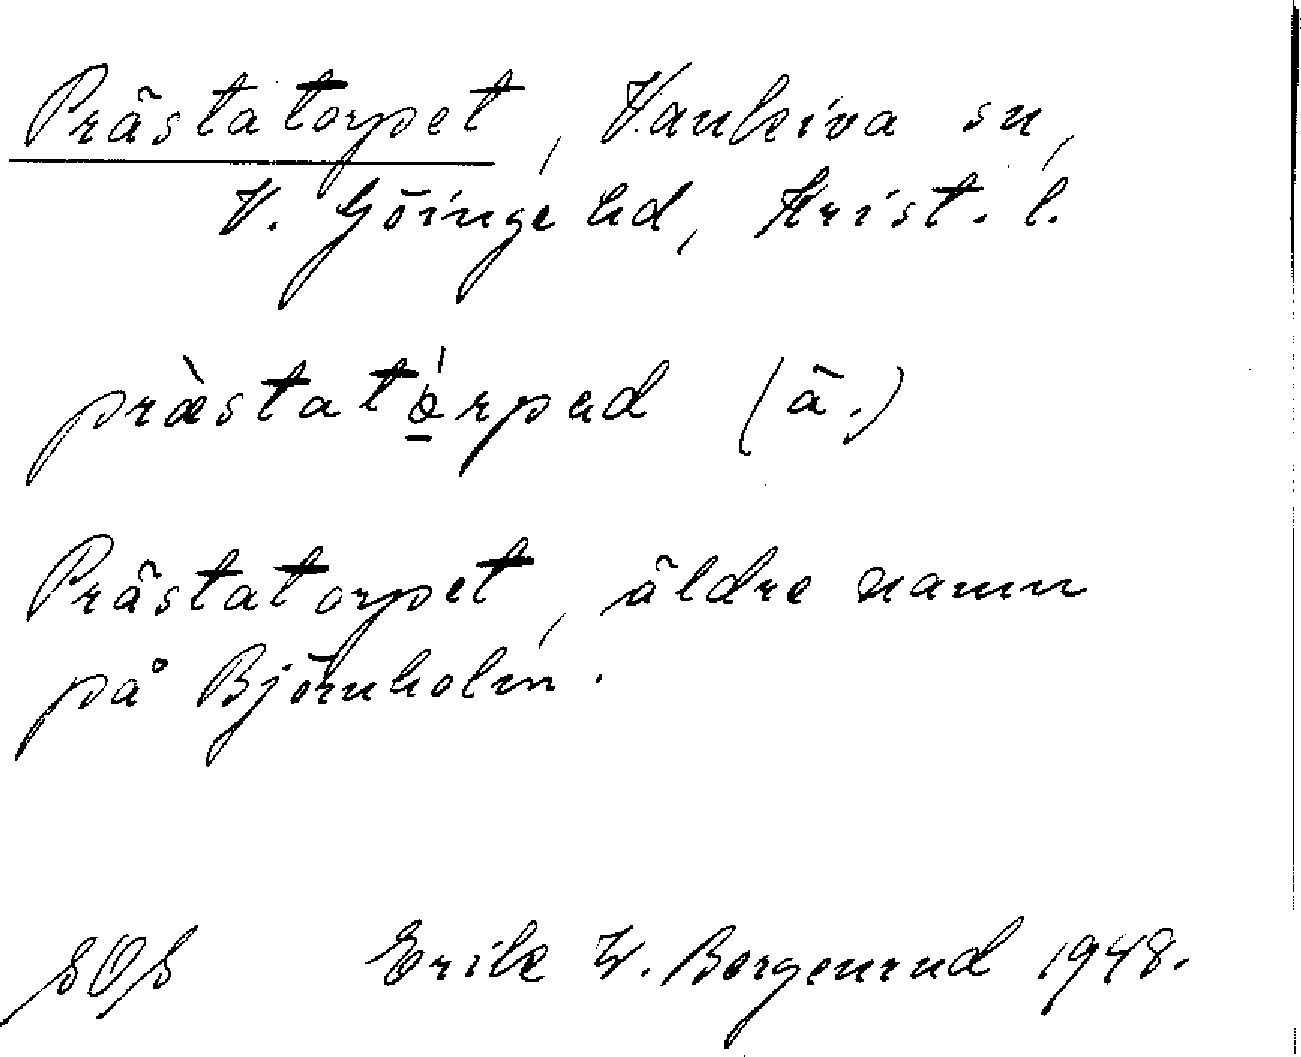 Prästatorpet, Vankiva sn,
V. Göinge hd, Krist. l.
præ̀statɔ̲́rpəd (ä.)
Prästatorpet, äldre namn
på Björnholm.
SOS Erik W. Bergenrud 1948.